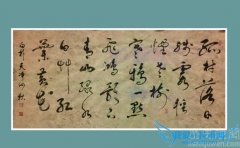 孤村落日
残霞轻
烟老树
寒鸦一点
飞鸿影下
青山绿水
白艸红
葉黄花
白朴天净沙秋